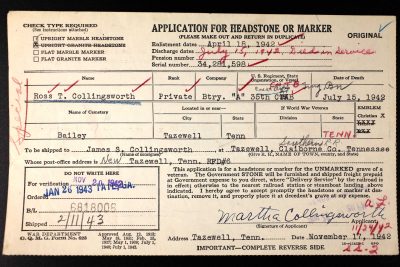 CHECK TYPE REQUIRED
(See instructions attached)
UPRIGHT MARBLE HEADSTONE
UPRIGHT GRANITE HEADSTONE
FLAT MARBLE MARKER
FLAT GRANITE MARKER
APPLICATION FOR HEADSTONE OR MARKER
(PLEASE MAKE OUT AND RETURN IN DUPLICATE)
ORIGINAL
Enlistment dates April 16, 1942
Discharge dates July 15, 1942, Died in Service
Pension number
Serial number 34,281,598
Name
Rank
Company
U. S. Regiment, State Organization, or Vessel
Date of Death
Ross T. Collingsworth
Private
Btry. "A"
56th
July 15, 1942
Name of Cemetery
Located in or near—
If World War Veteran
EMBLEM
City
State
Bailey
Tazewell
Tenn
TENN.
To be shipped to James S. Collingsworth at Tazewell, Claiborne Co. Tennessee
Southern
Whose post-office address is New Tazewell, Tenn.
DO NOT WRITE HERE
For verification
Ordered JAN 26 1943
B/L 6818006
2/11/43
This application is for a headstone or marker for the UNMARKED grave of a veteran. The Government STONE will be furnished and shipped freight prepaid at Government expense to you direct, where "Delivery Service" by the railroad is in effect; otherwise to the nearest railroad station or steamboat landing above indicated. I hereby agree to promptly accept the headstone or marker at destination, remove it, and properly place it at decedent's grave at my expense.
Martha Collingsworth
Applicant
11/24/42
WAR DEPARTMENT
O. Q. M. G. Form No. 623
Address Tazewell, Tenn. Date November 17, 1942
IMPORTANT—Complete Reverse Side